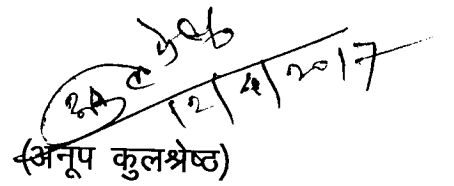 12/4/2017
(अनूप कुलश्रेष्ठ)